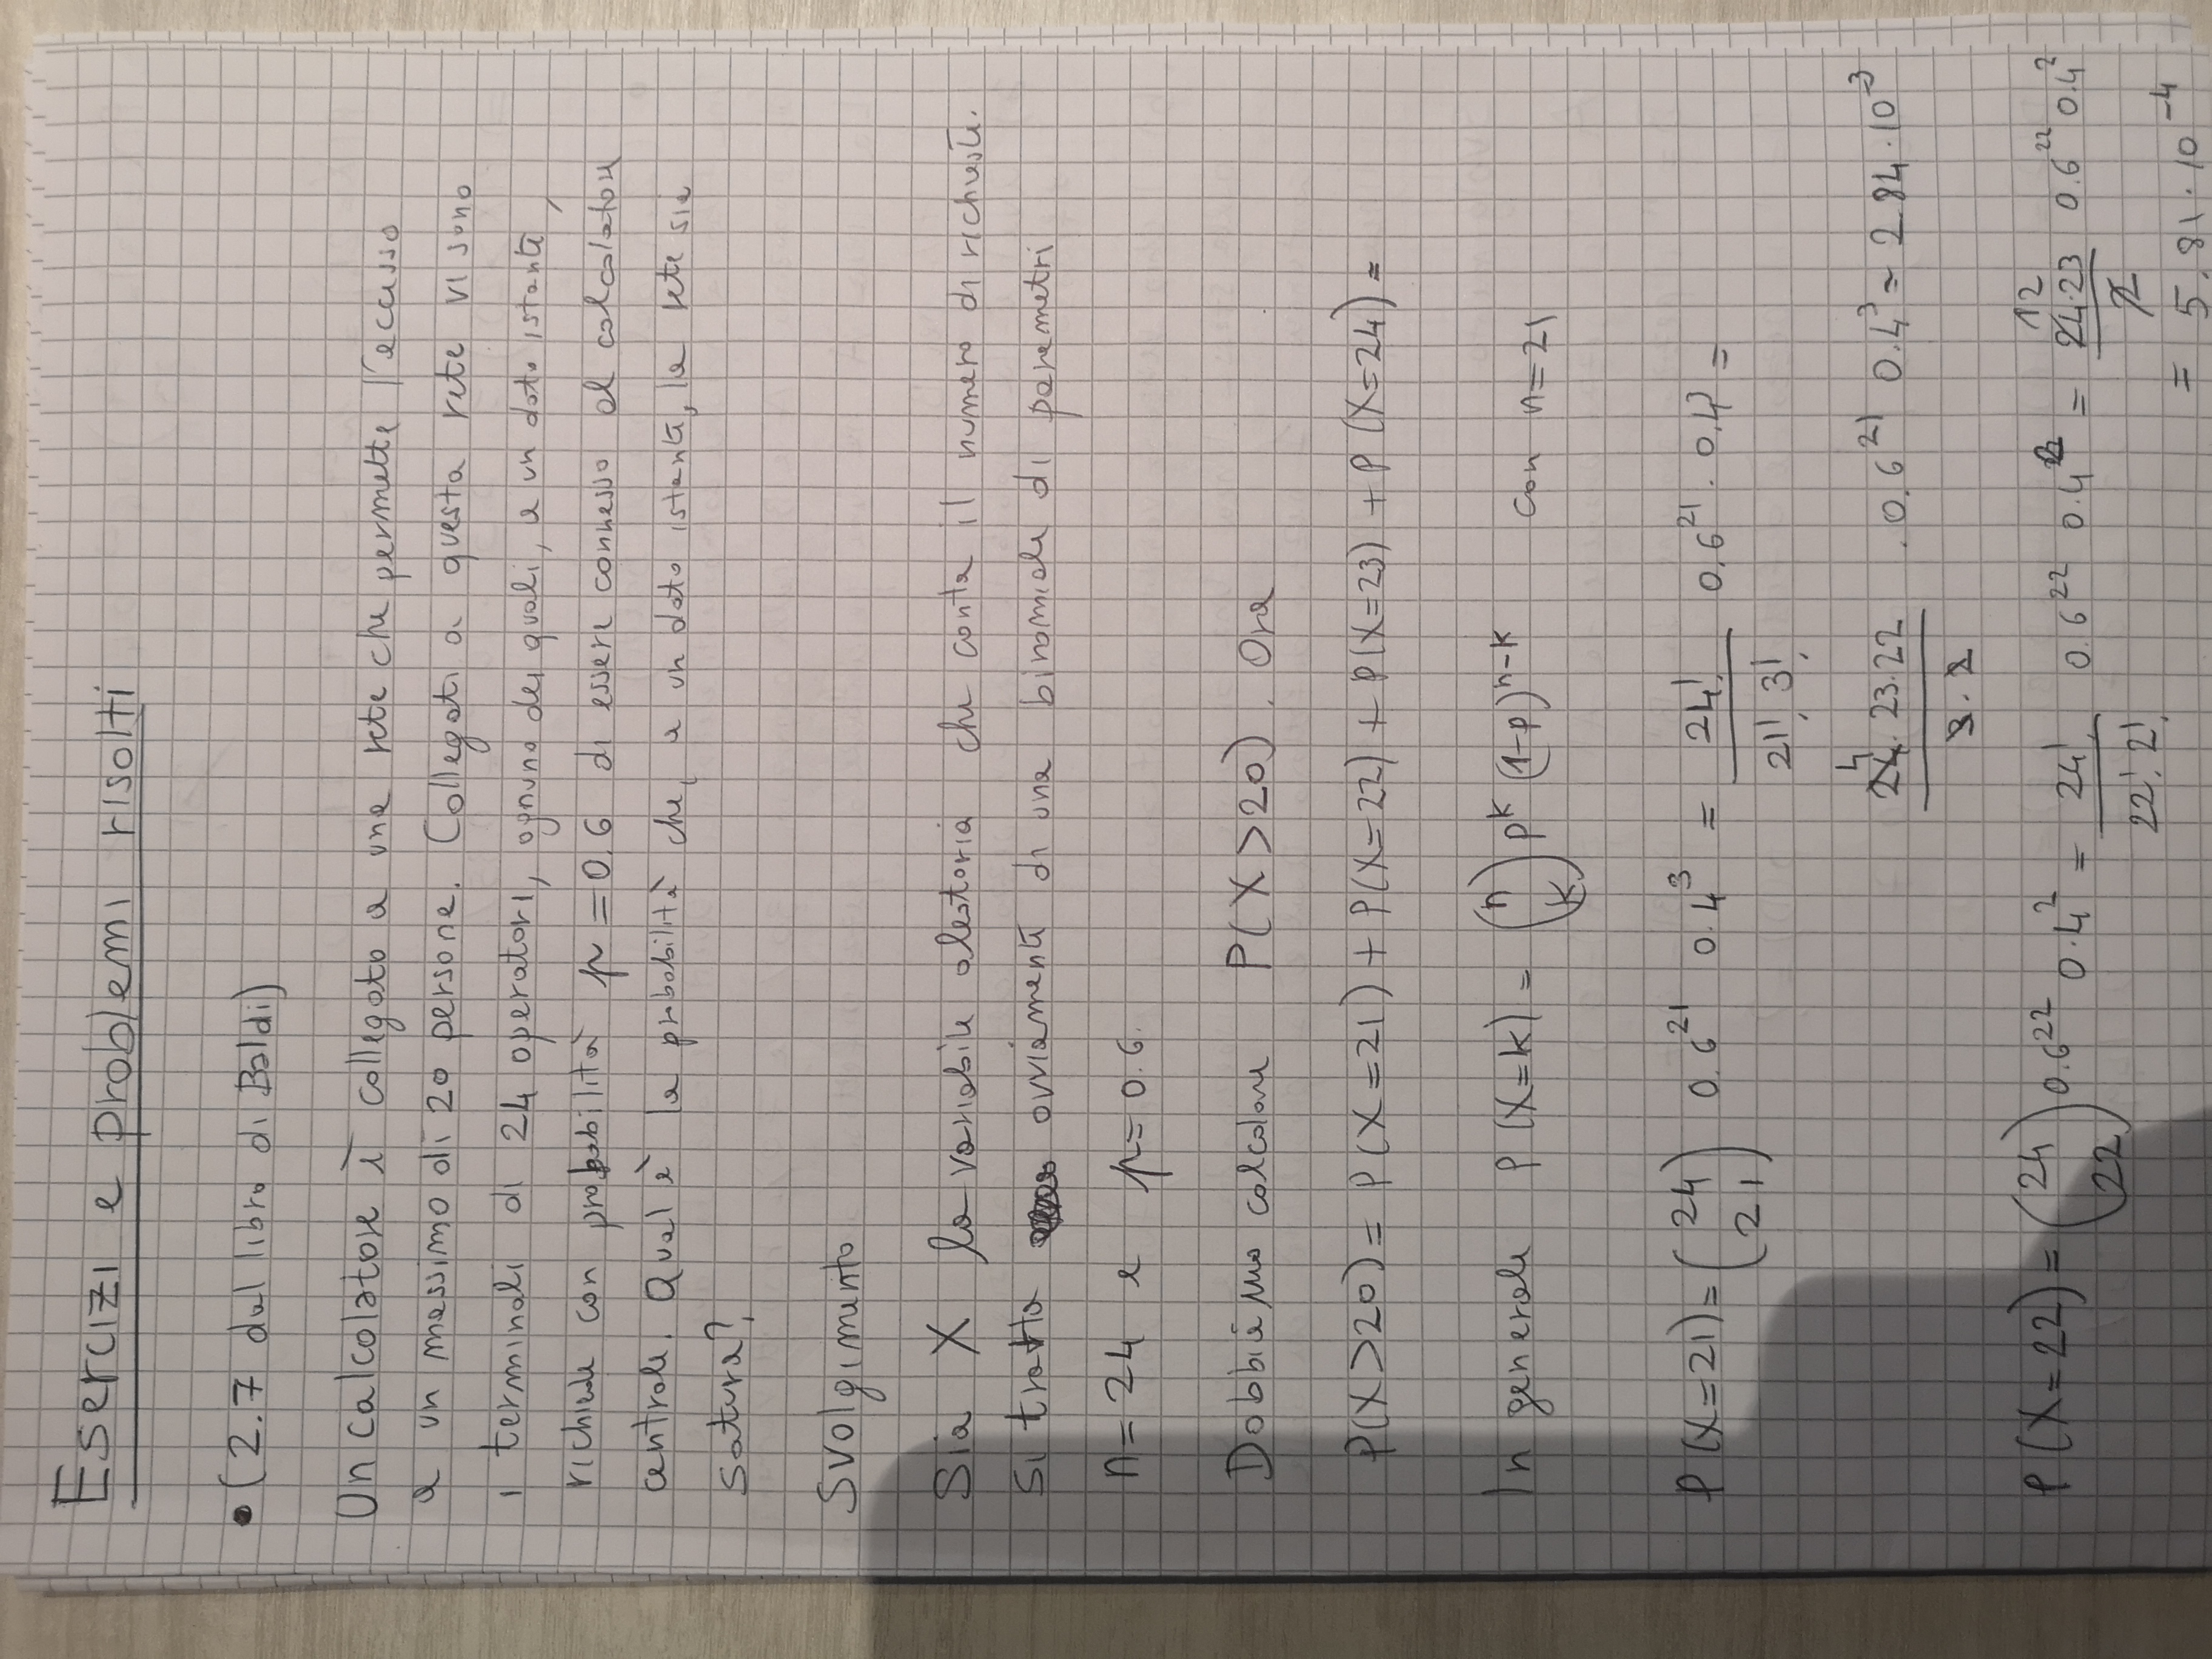 Esercizi e problemi risolti
• (2.7 dal libro di Baldi)
Un calcolatore è collegato a una rete che permette l'accesso
a un massimo di 20 persone. Collegati a questa rete vi sono
i terminali di 24 operatori, ognuno dei quali, a un dato istante,
richiede con probabilità p = 0.6 di essere connesso al calcolatore
centrale. Qual è la probabilità che, a un dato istante, la rete sia
satura?
Svolgimento
Sia X la variabile aleatoria che conta il numero di richieste.
Si tratta ovviamente di una binomiale di parametri
n = 24 e p = 0.6.
Dobbiamo calcolare P(X > 20). Ora
P(X > 20) = P(X = 21) + P(X = 22) + P(X = 23) + P(X = 24) =
In generale P(X = k) = (n k) p^k (1-p)^{n-k} con n = 21
P(X = 21) = (24 21) 0.6^21 0.4^3 = 24! / 21! 3! 0.6^21 · 0.4^3 =
24 · 23 · 22 / 3 · 2 · 0.6^21 0.4^3 = 2.84 · 10^-3
P(X = 22) = (24 22) 0.6^22 0.4^2 = 24! / 22! 2! 0.6^22 0.4^2 = 24 · 23 / 2 0.6^22 0.4^2
= 5.81 · 10^-4